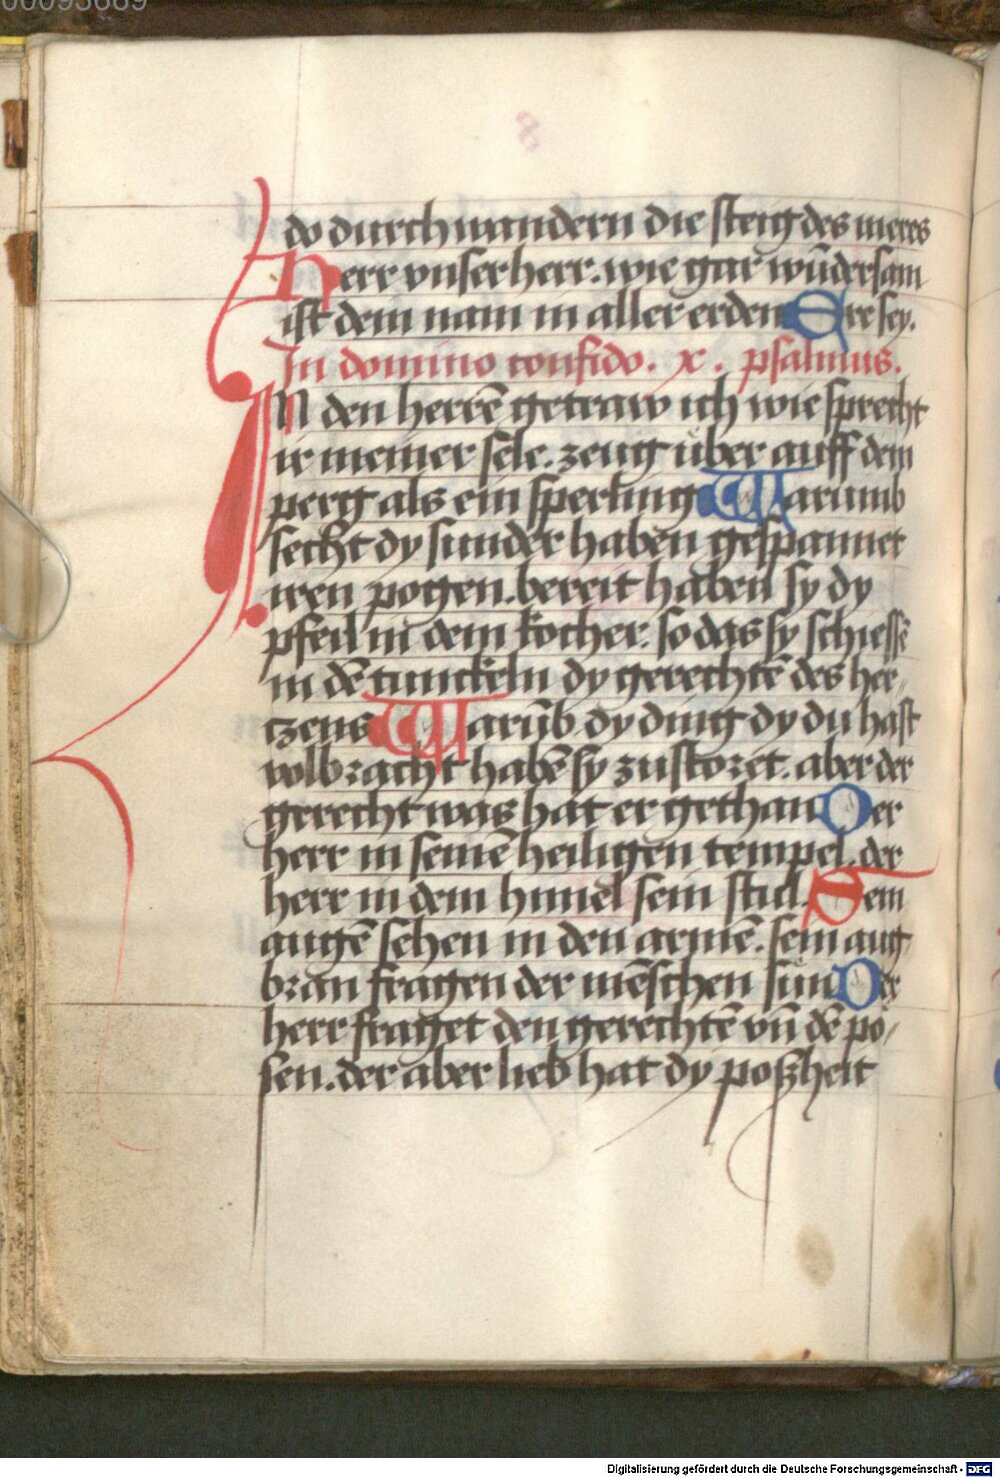 00093689
8
do durch wandern die steig des meres
Herr vnser herr. wie gar wūdersam
ist dein nam in aller erden Ere sey.
In domino confido. x. psalmus.
IN den herrē getraw ich wie sprecht
ir meiner sele. zeug über auff dem
perg als ein sperling Warumb
secht dy sunder haben gespannet
iren pogen. bereit haben sy dy
pfeil in dem kocher. so das sy schiessē
in dē tunckeln dy gerechtē des her/
tzens Warūb dy ding dy du hast
volbracht habē sy zustoret. aber der
gerecht was hat er gethan Der
herr in seinē heiligen tempel. der
herr in dem himel sein stul. Sein
augē sehen in den armē. sein aug
bran fragen der mēschen sün Der
herr fraget den gerechtē vn̄ dē pö/
sen. der aber lieb hat dy poszheit
Digitalisierung gefördert durch die Deutsche Forschungsgemeinschaft - DFG